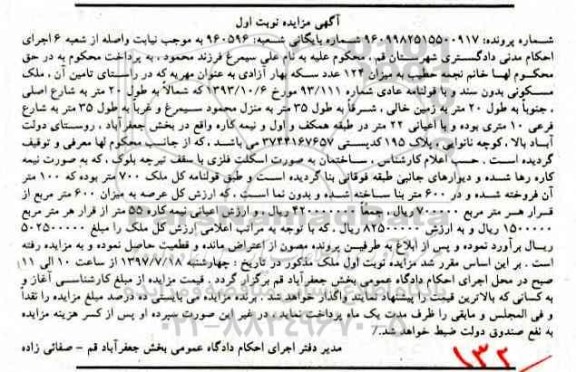 آگهی مزایده نوبت اول
شماره پرونده: ۹۶۰۹۹۸۲۵۱۵۵۰۰۹۱۷ شماره بایگانی شعبه: ۹۶۰۵۹۶ به موجب نیابت واصله از شعبه ۶ اجرای
احکام مدنی دادگستری شهرستان قم ، محکوم علیه به نام علی سیمرغ فرزند محمود ، به پرداخت محکوم به در حق
محکوم لها خانم نجمه خطیبی به میزان ۱۲۴ عدد سکه بهار آزادی به عنوان مهریه که در راستای تامین آن ، ملک
مسکونی بدون سند و با قولنامه عادی شماره ۹۳/۱۱۱ مورخ ۱۳۹۳/۱۰/۶ که شمالاً به طول ۲۰ متر به شارع اصلی
، جنوباً به طول ۲۰ متر به زمین خالی ، شرقاً به طول ۳۵ متر به منزل محمود سیمرغ و غرباً به طول ۳۵ متر به شارع
فرعی ۱۰ متری بوده و با اعیانی ۲۲ متر در طبقه همکف و اول و نیمه کاره واقع در بخش جعفرآباد ، روستای دولت
آباد بالا ، کوچه نانوایی ، پلاک ۱۹۵ کدپستی ۳۷۴۴۱۶۷۶۵۷ می باشند ، که از جانب محکوم لها معرفی و توقیف
گردیده است . حسب اعلام کارشناس ، ساختمان به صورت اسکلت فلزی با سقف تیرچه بلوک ، که به صورت نیمه
کاره رها شده و دیوارهای جانبی طبقه فوقانی بنا گردیده است و طبق قولنامه کل ملک ۷۰۰ متر بوده که ۱۰۰ متر
آن فروخته شده و در ۶۰۰ متر بنا ساخته شده و بدون نما است . که ارزش کل عرصه به میزان ۶۰۰ متر مربع از
قرار هر متر مربع ۷۰۰۰۰۰ ریال ، جمعا ۴۲۰۰۰۰۰۰۰ ریال و ارزش اعیانی نیمه کاره ۵۵ متر از قرار هر متر مربع
۱۵۰۰۰۰۰ ریال و به ارزش ۸۲۵۰۰۰۰۰ ریال . که با توجه به مراتب اعلامی ارزش کل ملک را مبلغ ۵۰۲۵۰۰۰۰۰
ریال برآورد نموده و پس از ابلاغ به طرفین پرونده مصون از اعتراض مانده و قطعیت حاصل نموده و به مزایده رفته
است . بر این اساس مقرر شد مزایده نوبت اول ملک مذکور در تاریخ : چهارشنبه ۱۳۹۷/۷/۱۸ از ساعت ۱۰ الی ۱۱
صبح در محل اجرای احکام دادگاه عمومی بخش جعفرآباد قم برگزار گردد . قیمت مزایده از مبلغ کارشناسی آغاز و
به کسانی که بالاترین قیمت را پیشنهاد نمایند واگذار خواهد شد . برنده مزایده می بایستی ده درصد مبلغ مزایده را نقداً
و فی المجلس و مابقی را ظرف مدت یک ماه پرداخت نماید ، در غیر این صورت سپرده او پس از کسر هزینه مزایده
به نفع صندوق دولت ضبط خواهد شد./
مدیر دفتر اجرای احکام دادگاه عمومی بخش جعفرآباد قم - صفائی زاده
۱۳۲
۰۲۱-۸۸۳۴۹۶۷۰